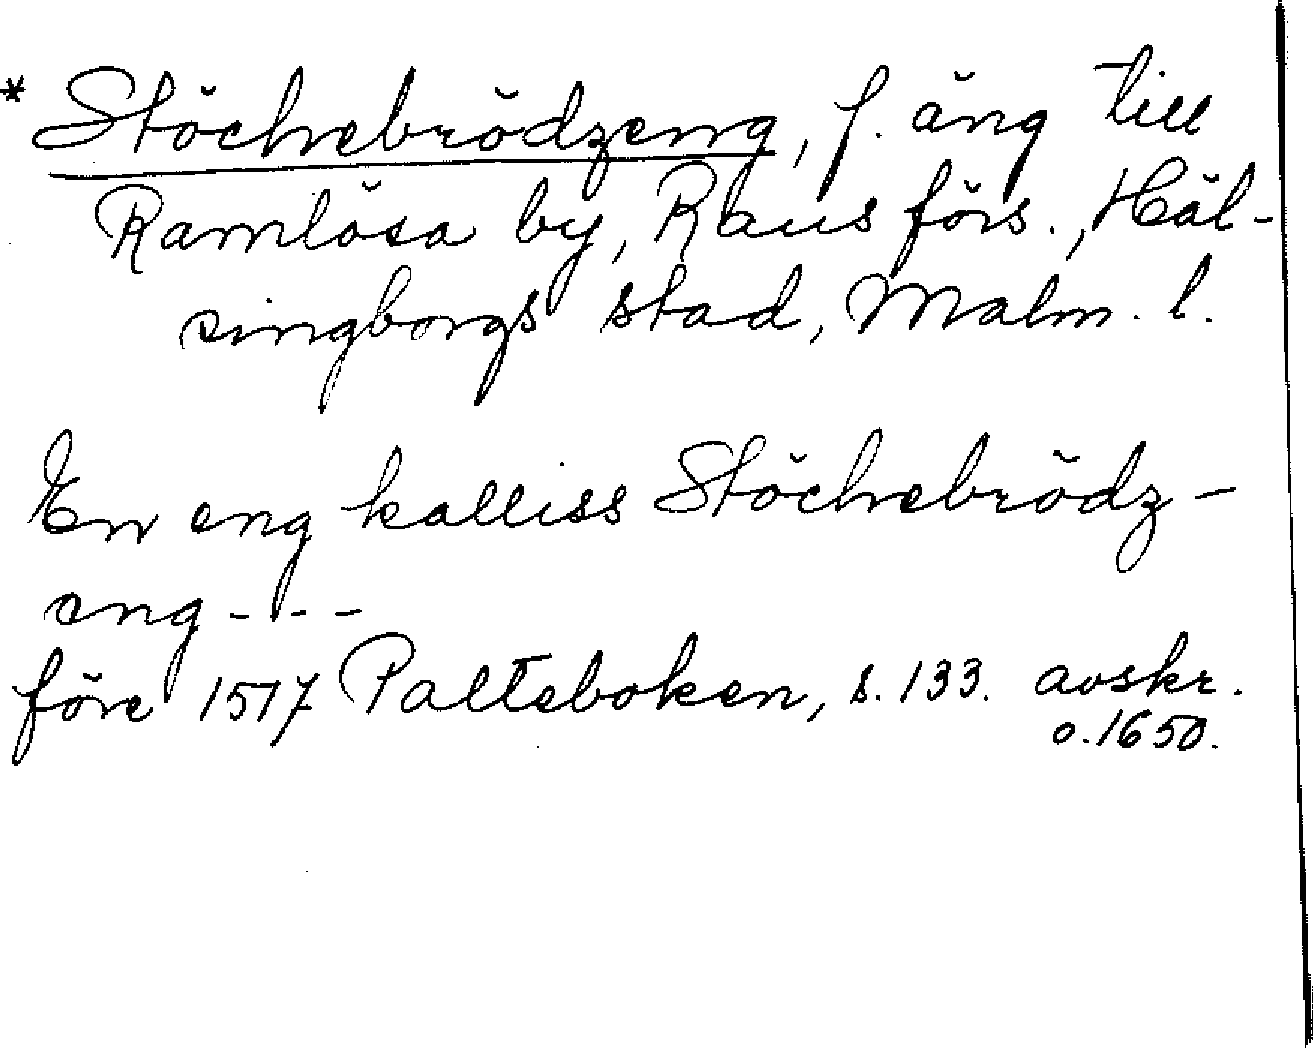 * Stöchebrödzeng, f. äng till
Ramlösa by, Raus förs., Häl-
singborgs stad, Malm. l.
En eng kalliss Stöchebrödz-
eng - - -
före 1517 Palteboken, s. 133. avskr.
o. 1650.